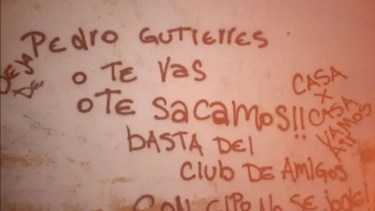 Pedro GUTIERRES
O Te Vas
O Te sacamos!!
basta del
club de amigos
DEJA
DE
CASA
X
CASA
VAMOS